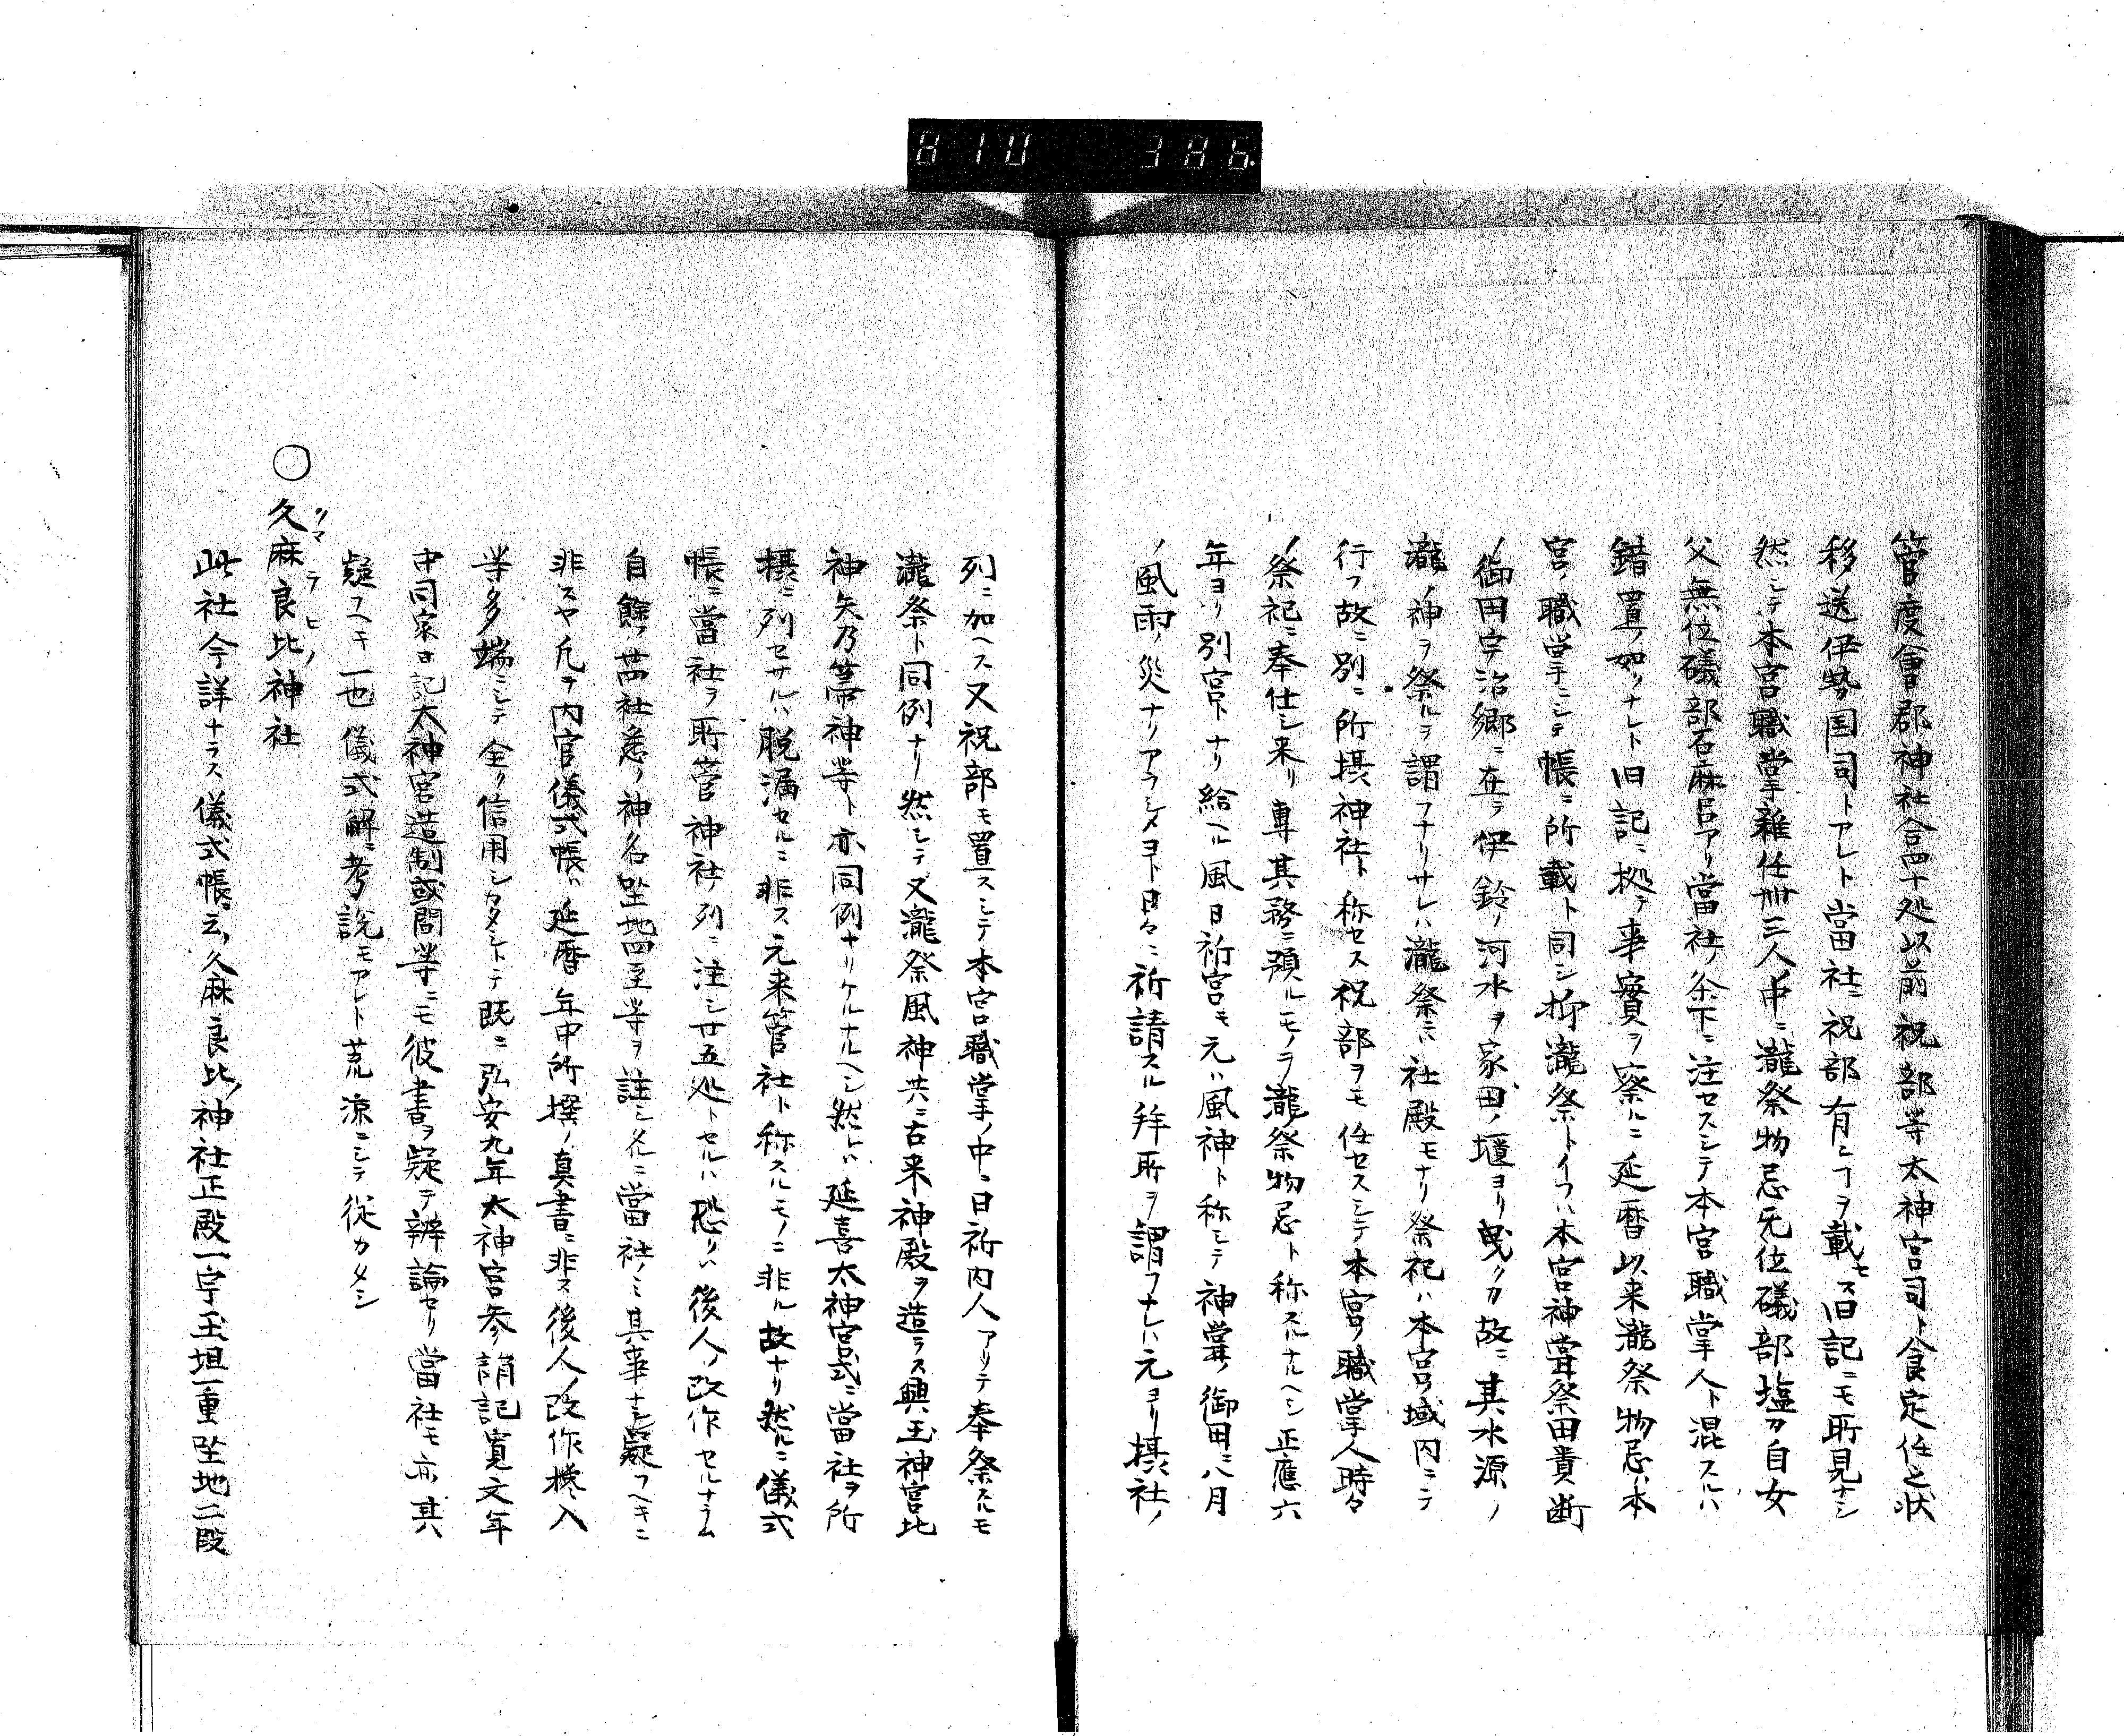 810 386
管度會郡神社合四十処以前祝部等太神宮司卜食定任之状
移送伊勢国司トアレト當社ニ祝部有シヿヲ載セス旧記ニモ所見ナシ
然シテ本宮職掌雑任卌三人ノ中ニ瀧祭物忌无位礒部塩刀自女
父無位礒部石麻呂アリ當社ノ条下ニ注セスシテ本宮職掌人ト混スルハ
錯置ノ如クナレト旧記ニ拠テ事實ヲ察ルニ延暦以来瀧祭物忌ハ本
宮ノ職掌ニシテ帳ニ所載ト同シ抑瀧祭トイフハ本宮神甞祭田責断
ノ御田宇治郷ニ在テ伊鈴ノ河水ヲ家田ノ堰ヨリ曳クカ故ニ其水源ノ
瀧ノ神ヲ祭ルヲ謂フナリサレハ瀧祭ニハ社殿モナク祭祀ハ本宮ノ域内ニテ
行フ故ニ別ニ所摂神社ト称セス祝部ヲモ任セスシテ本宮ノ職掌人時々
ノ祭祀ニ奉仕シ来リ専其務ニ預ルモノヲ瀧祭物忌ト称スルナルヘシ正應六
年ヨリ別宮トナリ給ヘル風日祈宮モ元ハ風神ト称シテ神甞ノ御田ニ八月
ノ風雨ノ災ナクアラシメヨト日々ニ祈請スル拜所ヲ謂フナレハ元ヨリ摂社ノ
列ニ加ヘス又祝部モ置スシテ本宮職掌ノ中ニ日祈内人アリテ奉祭スルモ
瀧祭ト同例ナリ然シテ又瀧祭風神共ニ古来神殿ヲ造ラス興玉神宮比
神矢乃箒神等ト亦同例ナリケルナルヘシ然レハ延喜太神宮式ニ當社ヲ所
摂ニ列セサルハ脱漏セルニ非ス元来管社ト称スルモノニ非ル故ナリ然ルニ儀式
帳ニ當社ヲ所管神社ノ列ニ注シ廿五処トセルハ恐クハ後人ノ改作セルナラム
自餘ノ廿四社悉ク神名坐地四至等ヲ註シタルニ當社ノミ其事ナシ疑フヘキニ
非スヤ凡ソ内宮儀式帳ハ延暦年中所撰ノ真書ニ非ス後人ノ改作攙入
等多端ニシテ全ク信用シカタシトテ既ニ弘安九年太神宮参詣記寛文年
中司家日記太神宮造制或問等ニモ彼書ヲ疑テ辨論セリ當社モ亦其
疑フヘキ一也儀式解ニ考説モアレト荒凉ニシテ従カタシ
○久麻良比神社
クマラヒノ
此社今詳ナラス儀式帳ニ云ク久麻良比ノ神社正殿一宇玉垣一重坐地二段